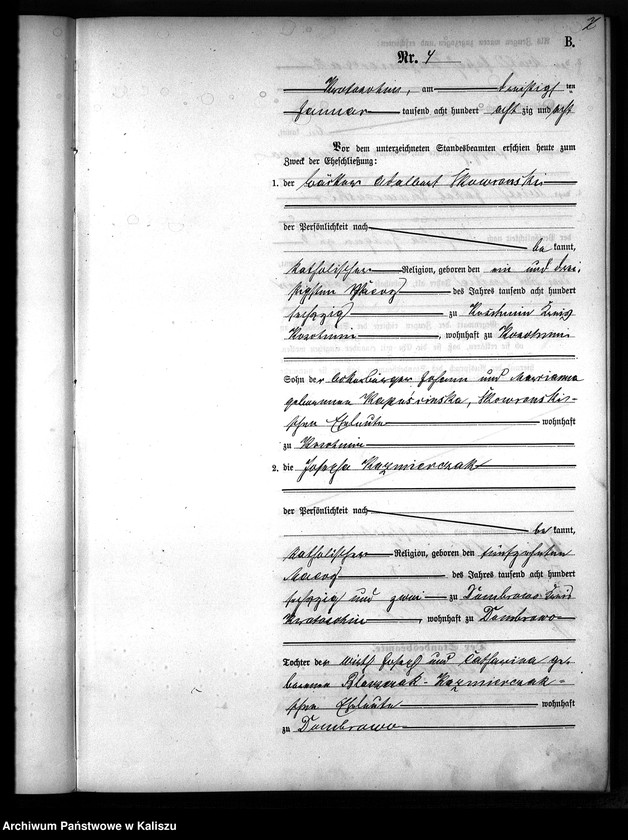 B.
Nr. 4
Krotoschin, am dreißig ten
Januar tausend acht hundert acht zig und acht
Vor dem unterzeichneten Standesbeamten erschien heute zum
Zweck der Eheschließung:
1. der Bäcker Adalbert Skowronski
der Persönlichkeit nach
be kannt,
katholischer Religion, geboren den ein und drei
ßigsten Maerz des Jahres tausend acht hundert
sechzig zu Koschmin Kreis
Koschmin, wohnhaft zu Koschmin
Sohn der Ackerbürger Johann und Marianna
geborenen Skowronski-
schen Eheleute wohnhaft
zu Koschmin
2. die Josepha Kazmierczak
der Persönlichkeit nach
be kannt,
katholischer Religion, geboren den fünfzehnten
Maerz des Jahres tausend acht hundert
sechzig und zwei zu Dombrowo Kreis
Krotoschin, wohnhaft zu Dombrowo
Tochter der Wirth Joseph und Catharina ge-
borenen Kazmierczak-
schen Eheleute wohnhaft
zu Dombrowo
Archiwum Państwowe w Kaliszu